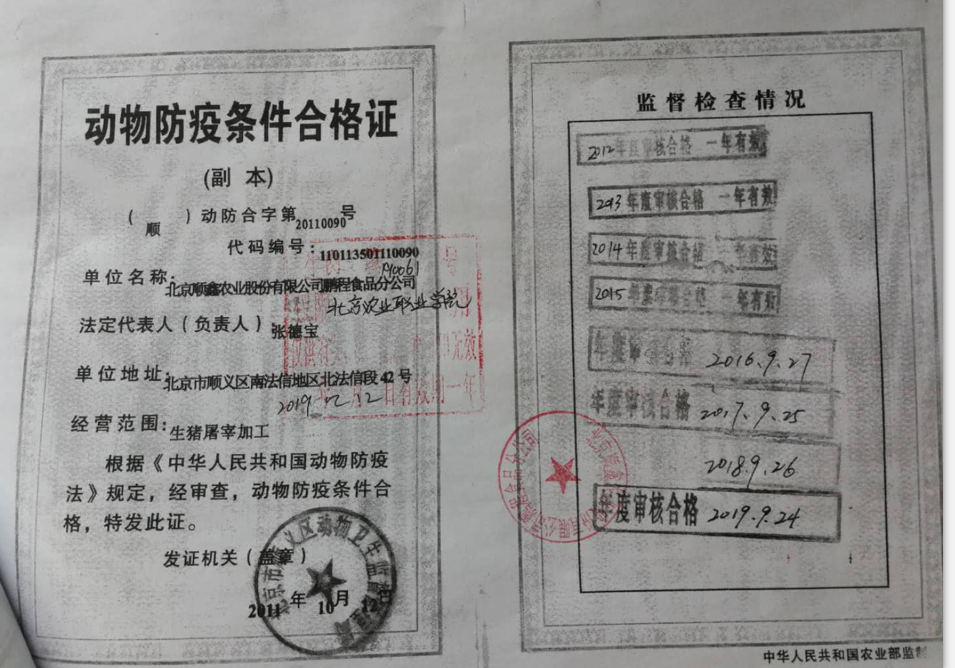 动物防疫条件合格证
(副 本)
( 顺 ) 动防合字第20110090号
代码编号：110113501110090
单位名称：北京顺鑫农业股份有限公司鹏程食品分公司
北京农业职业学院
法定代表人（负责人）张德宝
单位地址：北京市顺义区南法信地区北法信段42号
2019 12 12
经营范围：生猪屠宰加工
根据《中华人民共和国动物防疫
法》规定，经审查，动物防疫条件合
格，特发此证。
发证机关（盖章）
2011年10月12日
监督检查情况
2012年度审核合格 一年有效
2013年度审核合格 一年有效
2014年度审核合格 一年有效
2015年度审核合格 一年有效
年度审核合格 2016.9.27
年度审核合格 2017.9.25
2018.9.26
年度审核合格 2019.9.24
中华人民共和国农业部监制